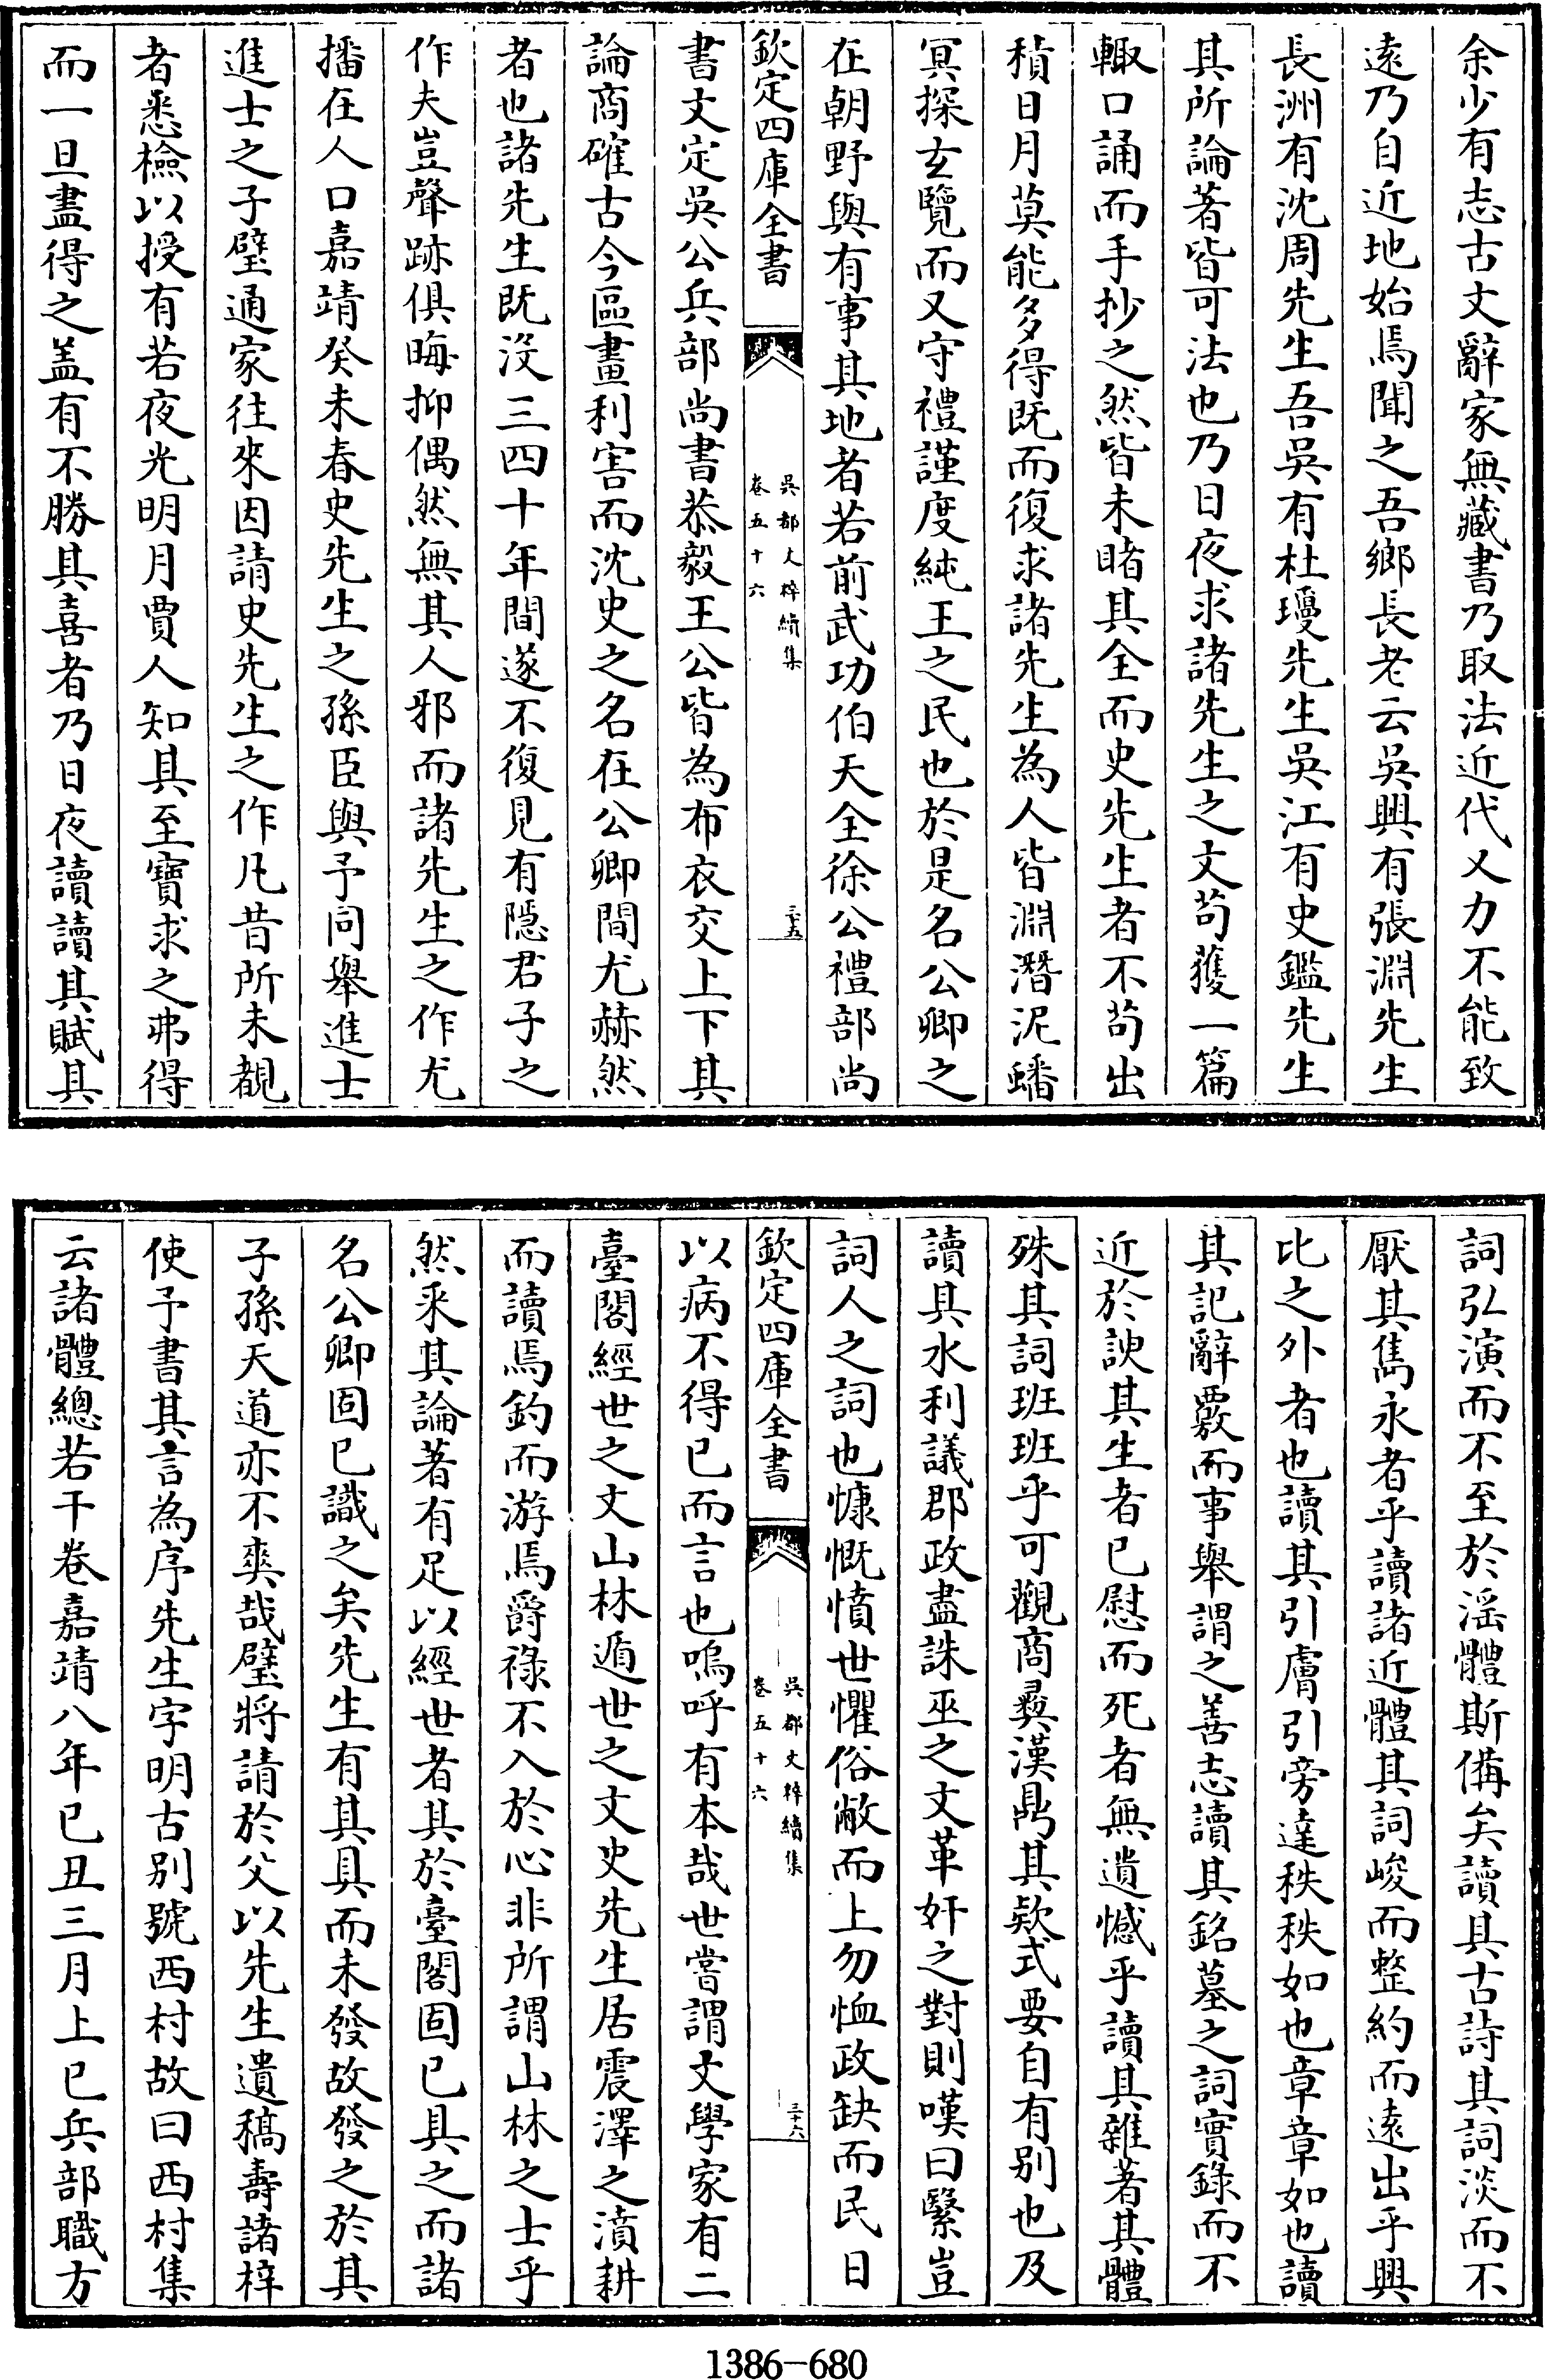 余少有志古文辭家無藏書乃取法近代又力不能致
遠乃自近地始焉聞之吾鄉長老云吳興有張淵先生
長洲有沈周先生吾吳有杜瓊先生吳江有史鑑先生
其所論著皆可法也乃日夜求諸先生之文苟獲一篇
輙口誦而手抄之然皆未睹其全而史先生者不苟出
積日月莫能多得既而復求諸先生為人皆淵潛泥蟠
冥探玄覽而又守禮謹度純王之民也於是名公卿之
在朝野與有事其地者若前武功伯天全徐公禮部尚
欽定四庫全書
吳都文粹續集
卷五十六
三十五
書文定吳公兵部尚書恭毅王公皆為布衣交上下其
論商確古今區畫利害而沈史之名在公卿間尤赫然
者也諸先生既沒三四十年間遂不復見有隱君子之
作夫豈聲跡俱晦抑偶然無其人邪而諸先生之作尤
播在人口嘉靖癸未春史先生之孫臣與予同舉進士
進士之子璧通家往來因請史先生之作凡昔所未覩
者悉檢以授有若夜光明月賈人知其至寶求之弗得
而一旦盡得之盖有不勝其喜者乃日夜讀讀其賦其
詞弘演而不至於滛體斯備矣讀其古詩其詞淡而不
厭其雋永者乎讀諸近體其詞峻而整約而遠出乎興
比之外者也讀其引膚引旁達秩秩如也章章如也讀
其記辭覈而事舉謂之善志讀其銘墓之詞實錄而不
近於諛其生者已慰而死者無遺憾乎讀其雜著其體
殊其詞班班乎可觀商彞漢鼎其欵式要自有別也及
讀其水利議郡政盡誅巫之文革奸之對則嘆曰繄豈
詞人之詞也慷慨憤世懼俗敝而上勿恤政缺而民日
欽定四庫全書
吳都文粹續集
卷五十六
三十六
以病不得已而言也嗚呼有本哉世嘗謂文學家有二
臺閣經世之文山林遁世之文史先生居震澤之濆耕
而讀焉釣而游焉爵祿不入於心非所謂山林之士乎
然釆其論著有足以經世者其於臺閣固已具之而諸
名公卿固已識之矣先生有其具而未發故發之於其
子孫天道亦不爽哉璧將請於父以先生遺稿壽諸梓
使予書其言為序先生字明古別號西村故曰西村集
云諸體總若干卷嘉靖八年已丑三月上巳兵部職方
1386-680